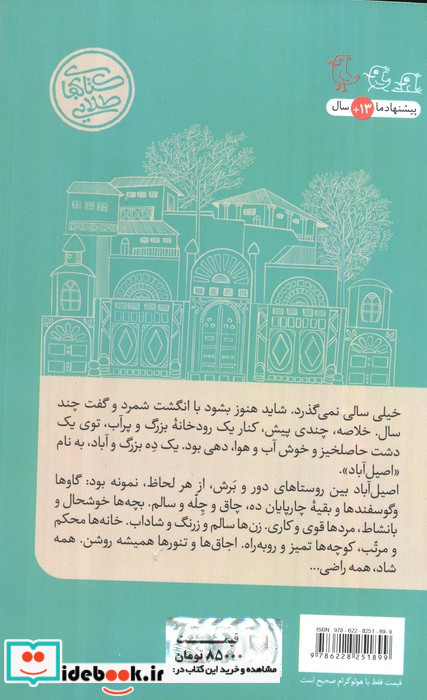 کتابهای
طلایی
پیشنهاد ما +۱۳ سال
خیلی سالی نمی‌گذرد. شاید هنوز بشود با انگشت شمرد و گفت چند
سال. خلاصه، چندی پیش، کنار یک رودخانهٔ بزرگ و پرآب، توی یک
دشت حاصلخیز و خوش آب و هوا، دهی بود. یک دِه بزرگ و آباد، به نام
«اصیل‌آباد».
اصیل‌آباد بین روستاهای دور و بَرش، از هر لحاظ، نمونه بود: گاوها
وگوسفندها و بقیهٔ چارپایان ده، چاق و چِلّه و سالم. بچه‌ها خوشحال و
بانشاط، مردها قوی و کاری. زن‌ها سالم و زرنگ و شاداب. خانه‌ها محکم
و مرتّب، کوچه‌ها تمیز و روبه‌راه. اجاق‌ها و تنورها همیشه روشن. همه
شاد، همه راضی...
۸۵۰۰۰ تومان
مشاهده و خرید این کتاب در:
idebook.ir
ISBN: 978-622-8251-89-9
9 786228 251899
قیمت فقط با هولوگرام صحیح است